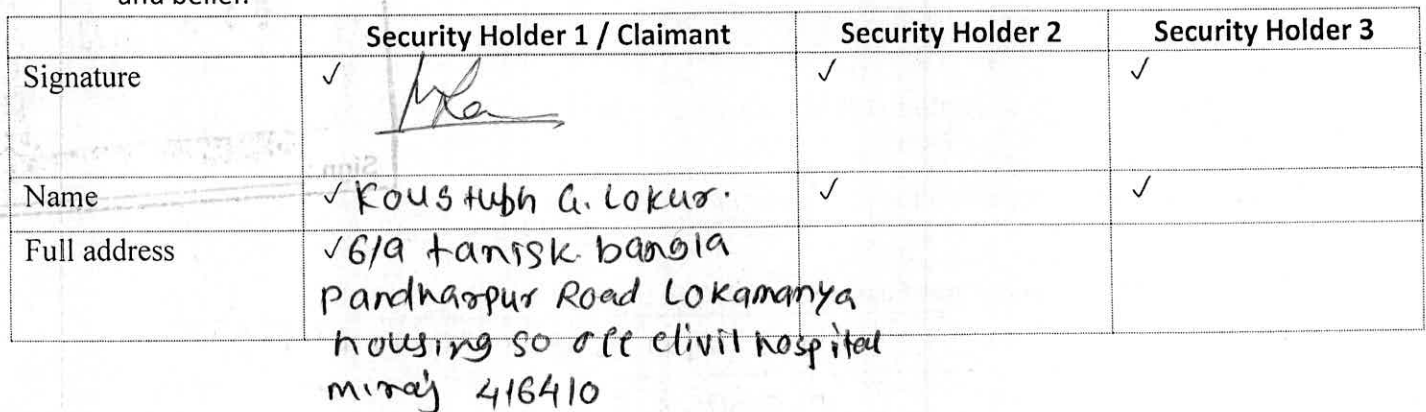 and belief.
Security Holder 1 / Claimant Security Holder 2 Security Holder 3
Signature ✓ ✓ ✓
Name ✓ Koustubh G. Lokur. ✓ ✓
Full address ✓ 6/9 tanisk bangla
Pandharpur Road Lokamanya
housing so off civil hospital
miraj 416410